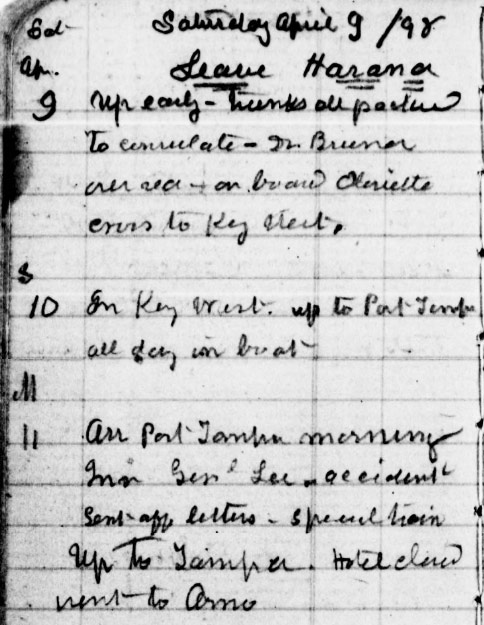 Sat Saturday April 9 /98
Ap. Leave Havana
9 Up early - trunks all packed
To consulate - Dr. Brunner
over sea - on board Olivette
cross to Key West.
S
10 In Key West. up to Port Tampa
all day on boat
M
11 Arr Port Tampa morning
Genl Lee accident
Sent off letters - Special train
Up to Tampa. Hotel closed
went to Arno